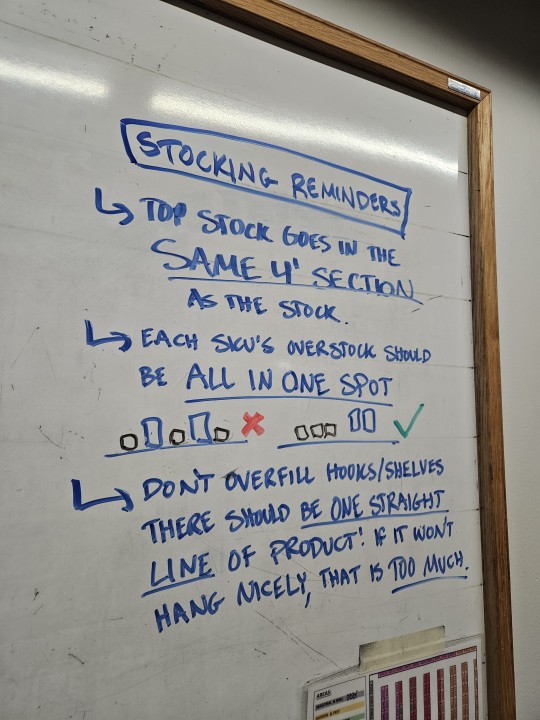 STOCKING REMINDERS
↳ TOP STOCK GOES IN THE
SAME 4' SECTION
AS THE STOCK.
↳ EACH SKU'S OVERSTOCK SHOULD
BE ALL IN ONE SPOT
↳ DON'T OVERFILL HOOKS/SHELVES
THERE SHOULD BE ONE STRAIGHT
LINE OF PRODUCT! IF IT WON'T
HANG NICELY, THAT IS TOO MUCH.